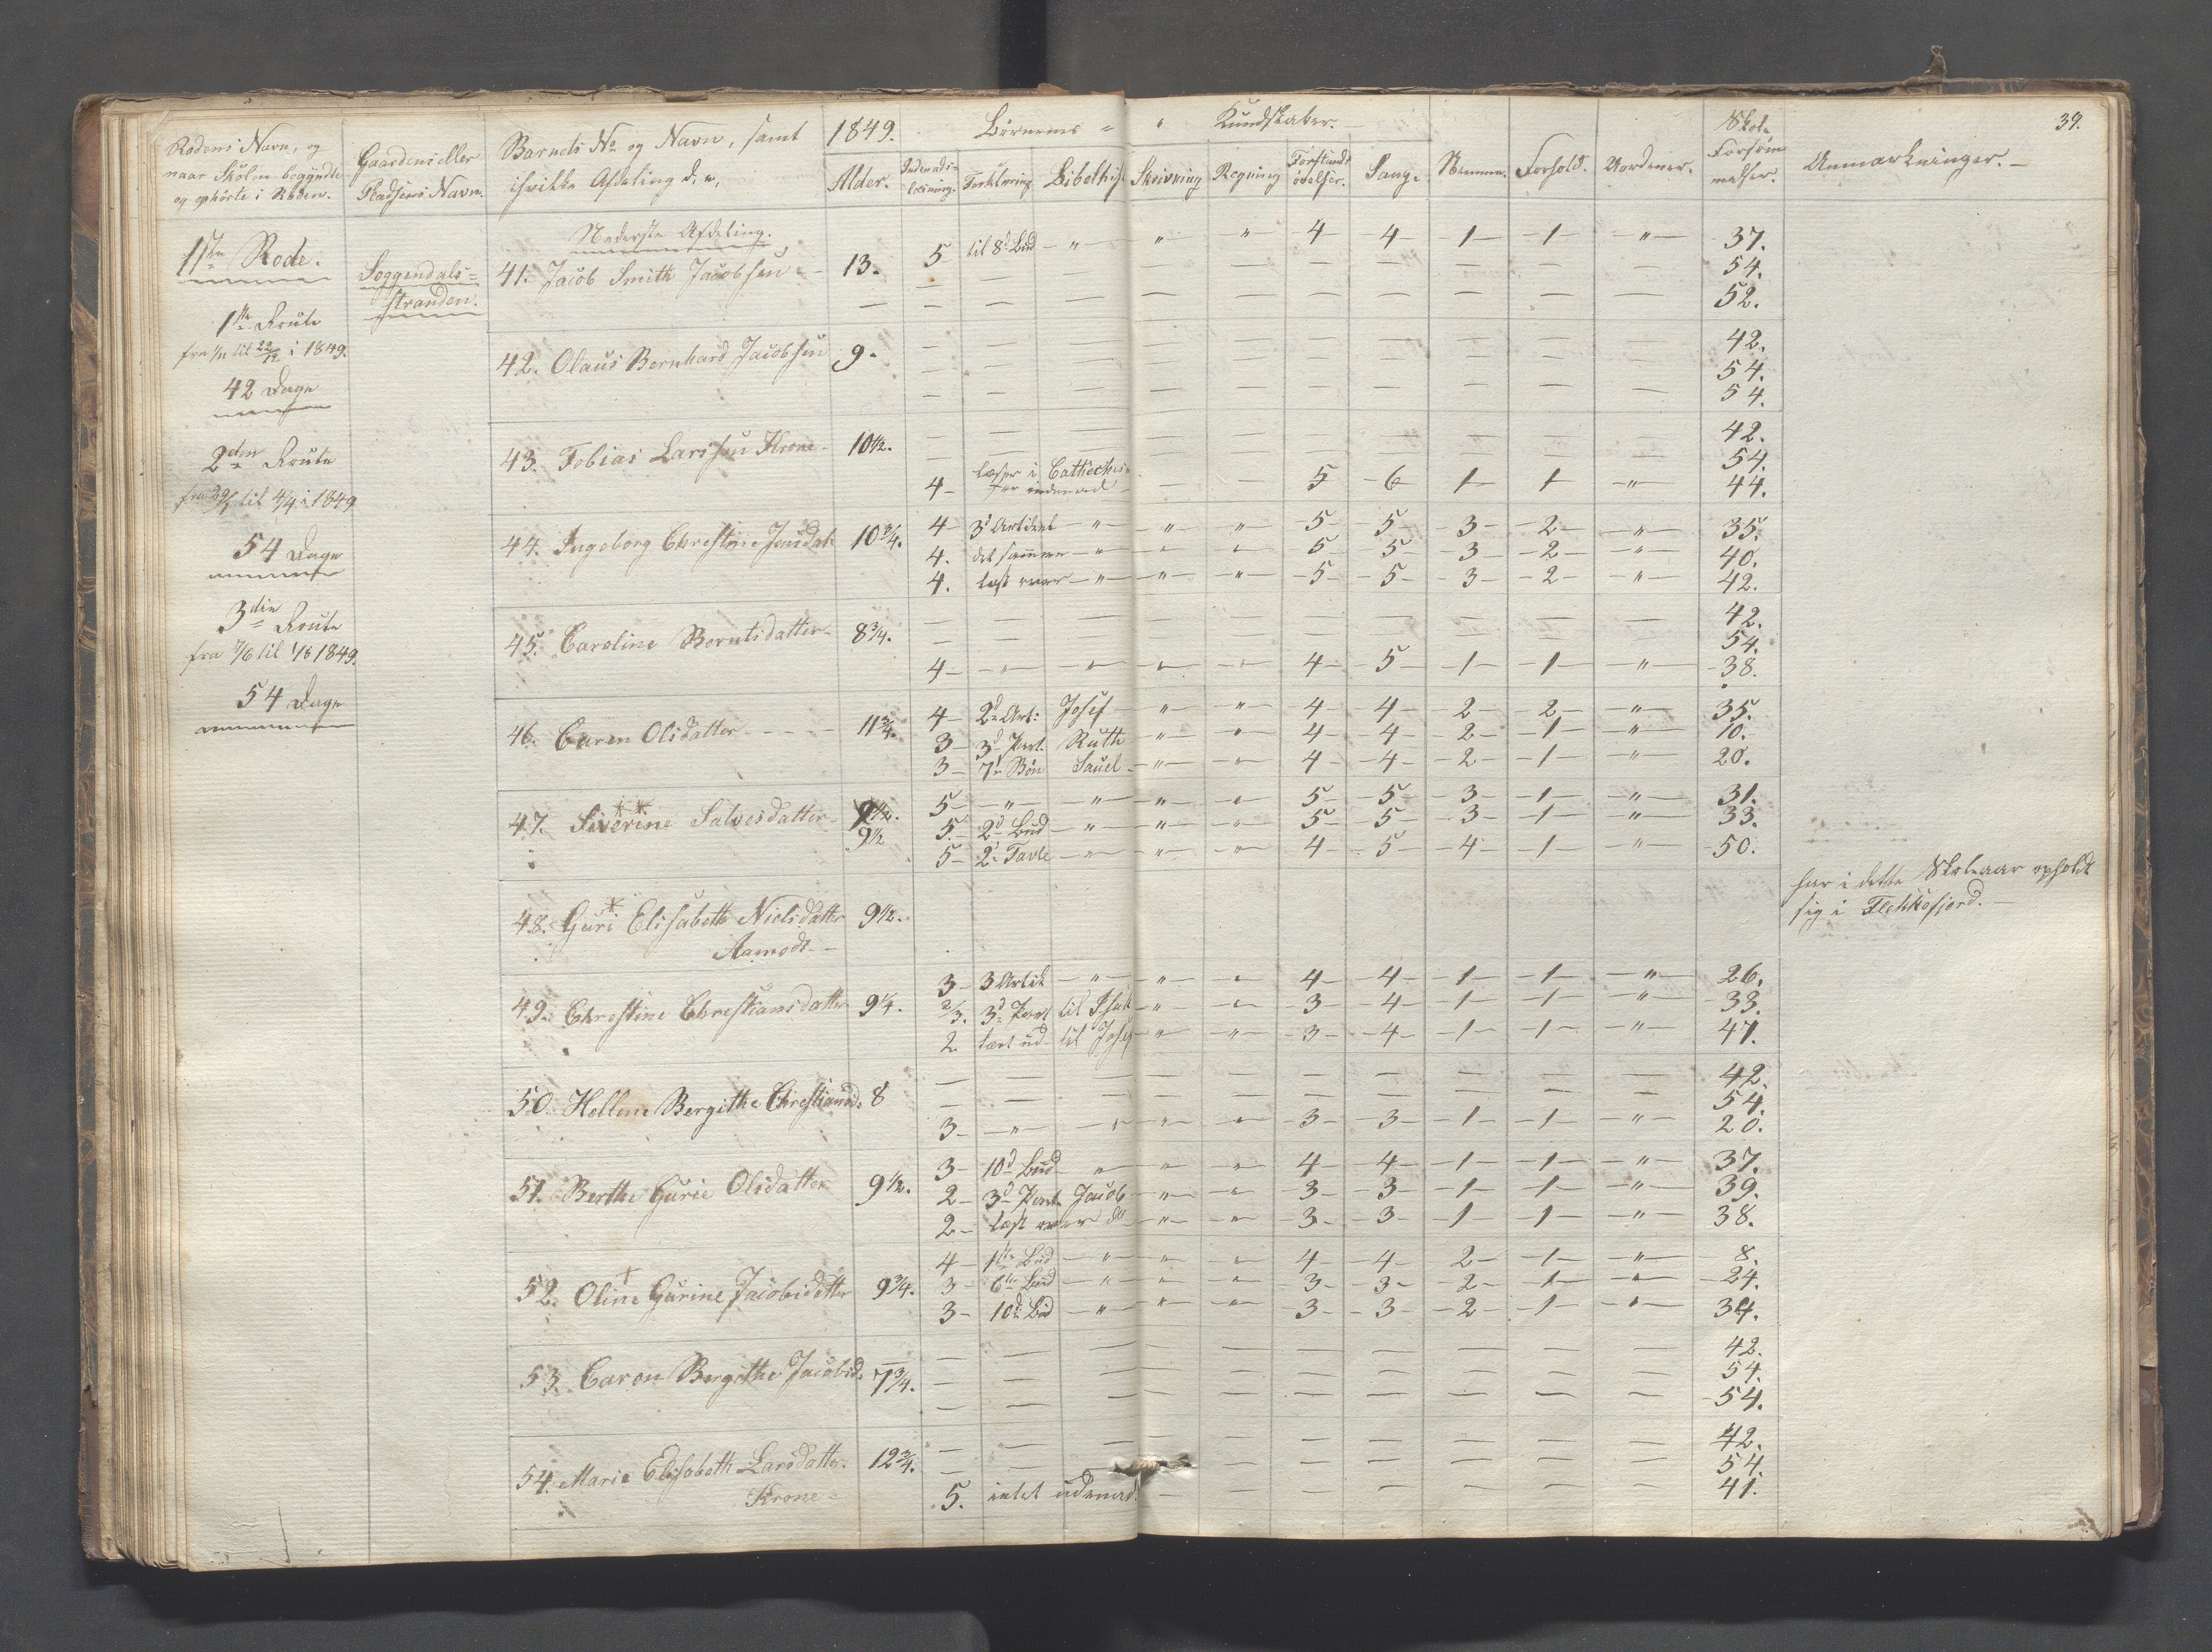 39.
Rodens Navn, og naar Skolen begyndte og ophörte i Roden.
Gaardens eller Pladsens Navn.
Barnets No og Navn, samt ihvilke Afdeling d. er,
1849. Alder.
Börnenes Kundskaber.
Indenads-læsning. Forklaring Bibelhist. Skrivning Regning Forstands övelser. Sang.
Nemme. Forhold. Uordener. Skole Forsömmelser. Anmærkninger.
1ste Rode.
Soggendals-stranden.
1ste Route
fra 1/11 til 22/12 i 1849.
42 Dage
2den Route
til 4/4 i 1849
54 Dage
3die Route
til 1/8 1849.
54 Dage
Nederste Afdeling.
41. Jacob Smith Jacobsen - 13. 5 til 8d Bud - " " " 4 4 1 1 " 37.
— — — — — — — — — — 54.
— — — — — — — — — — 52.
42. Olaus Bernhard Jacobsen 9. — — — — — — — — — — 42.
— — — — — — — — — — 54.
— — — — — — — — — — 54.
43. Tobias Larssen Krone - 10 1/2. — — — — — — — — — — 42.
— — — — — — — — — — 54.
4 læser i Cattechis — — 5 6 1 1 " 44.
44. Ingeborg Chrestine Jensdat 10 3/4. 4 3d Artikel " " " 5 5 3 2 " 35.
4. det samme " " " 5 5 3 2 " 40.
4. læst over " " " 5 5 3 2 " 42.
45. Caroline Berntsdatter 8 3/4. — — — — — — — — — — 42.
— — — — — — — — — — 54.
4 " " " " 4 5 1 1 " 38.
46. Caren Olsdatter - - - 11 3/4. 4 2d Art: Josef " " 4 4 2 2 " 35.
3 3d Part. Ruth " " 4 4 2 1 " 10.
3 7de Bön Sauel " " 4 4 2 1 " 20.
47. Siverine Salvesdatter 9 1/2. 5 " " " " 5 5 3 1 " 31.
9 1/2 5. 2d Bud " " " 5 5 3 1 " 33.
5 2d Tavle " " " 4 5 4 1 " 50.
48. Guri Elisabeth Nielsdatter 9 1/2.
Aamodt
har i dette Skoleaar opholdt
sig i Flekkefjord.
49. Chrestine Chrestiansdatter 9 1/4. 3 3 Artik " " " 4 4 1 1 " 26.
2/3. 3d Part til Isak " " 3 4 1 1 " 33.
2 lært ud til Josef " " 3 4 1 1 " 47.
50. Hellene Bergithe Chrestiansd. 8 — — — — — — — — — — 42.
— — — — — — — — — — 54.
3 " " " " 3 3 1 1 " 20.
51. Berthe Gurie Olsdatter 9 1/2. 3 10d Bud " " " 4 4 1 1 " 37.
2 3d Part Jacob " " 3 3 1 1 " 39.
2 læst over do " " 3 3 1 1 " 38.
52. Oline Gurine Jacobsdatter 9 3/4. 4 1ste Bud " " " 4 4 2 1 " 8.
3 6te Bud " " " 3 3 2 1 " 24.
3 10de Bud " " " 3 3 2 1 " 34.
53. Caren Bergithe Jacobsd. 7 3/4. — — — — — — — — — — 42.
— — — — — — — — — — 54.
— — — — — — — — — — 54.
54. Marie Elisabeth Larsdatter. 12 3/4. — — — — — — — — — — 42.
Krone — — — — — — — — — — 54.
5. intet udenad — — — — — — — 41.